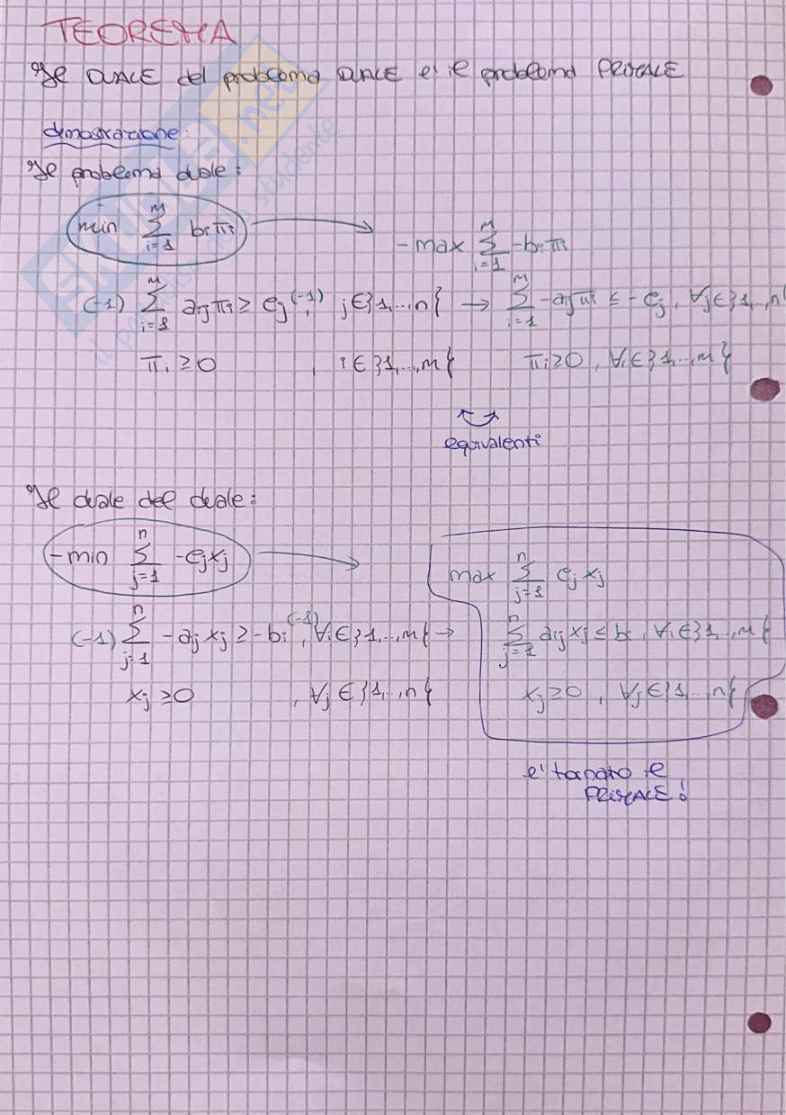 TEOREMA
Il DUALE del problema DUALE e' il problema PRIMALE
dimostrazione:
Il problema duale:
min ∑_{i=1}^{m} b_i π_i → -max ∑_{i=1}^{m} -b_i π_i
(-1) ∑_{i=1}^{m} a_ij π_i ≥ c_j (-1), j∈}1,...,n{ → ∑_{i=1}^{m} -a_ij π_i ≤ -c_j, ∀j∈}1,..,n{
π_i ≥ 0 , i∈}1,...,m{ π_i ≥ 0, ∀i∈}1,..,m{
equivalenti
Il duale del duale:
-min ∑_{j=1}^{n} -c_j x_j → max ∑_{j=1}^{n} c_j x_j
(-1) ∑_{j=1}^{n} -a_ij x_j ≥ -b_i (-1), ∀i∈}1,...,m{ → ∑_{j=1}^{n} a_ij x_j ≤ b_i, ∀i∈}1,..,m{
x_j ≥ 0 , ∀j∈}1,...,n{ x_j ≥ 0, ∀j∈}1,...,n{
e' tornato il
PRIMALE!